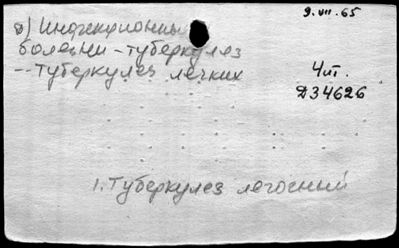 9.VII.65
б) Инфекционные
болезни - туберкулез
-- туберкулез легких
Чит.
Д34626
1. Туберкулез легочный